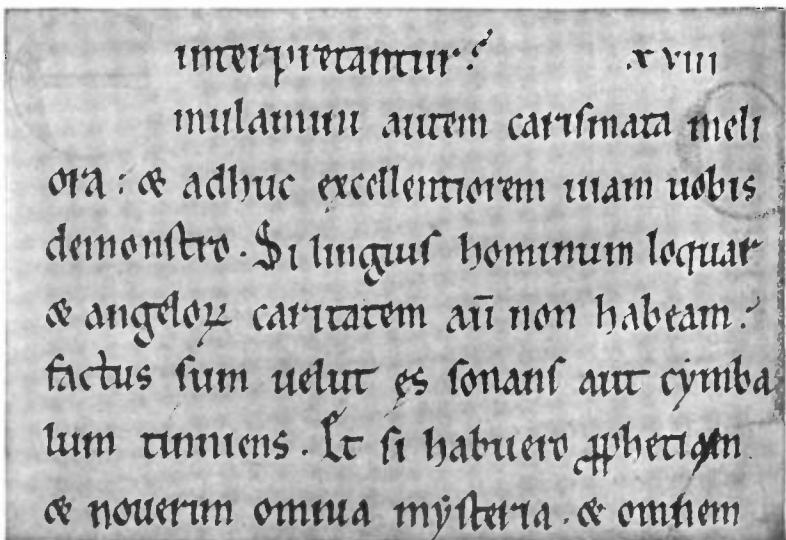 interpretantur? xviii
mulamini autem carismata meli
ora: & adhuc excellentiorem uiam uobis
demonstro. Si linguis hominum loquar
& angeloꝝ caritatem aū non habeam?
factus sum uelut ęs sonans aut cẏmba
lum tinniens. Et si habuero ꝓphetiam
& nouerim omnia mẏsteria. & omnem